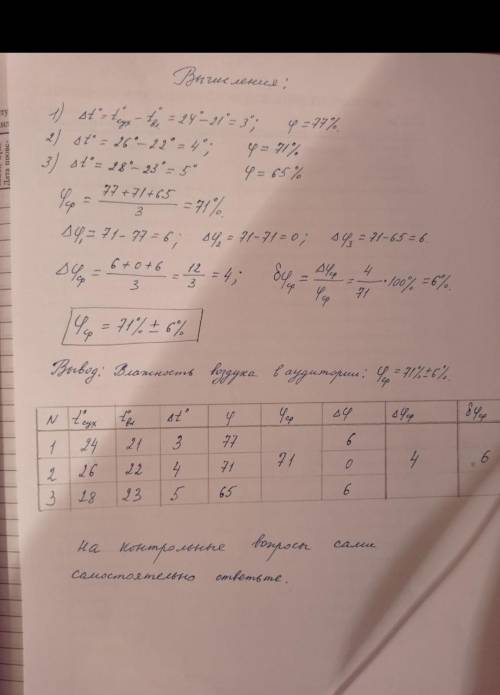 Вычисления:
1) Δt° = t°сух − t°вл = 24° − 21° = 3°; φ = 77%.
2) Δt° = 26° − 22° = 4°; φ = 71%
3) Δt° = 28° − 23° = 5° φ = 65%
φср = (77+71+65)/3 = 71%.
Δφ₁ = 71 − 77 = 6; Δφ₂ = 71 − 71 = 0; Δφ₃ = 71 − 65 = 6.
Δφср = (6+0+6)/3 = 12/3 = 4; δφср = Δφср/φср = 4/71 · 100% = 6%.
φср = 71% ± 6%
Вывод: Влажность воздуха в аудитории: φср = 71% ± 6%.
N t°сух t°вл Δt° φ φср Δφ Δφср δφср
1 24 21 3 77 71 6 4 6
2 26 22 4 71 0
3 28 23 5 65 6
На контрольные вопросы сами
самостоятельно ответьте.